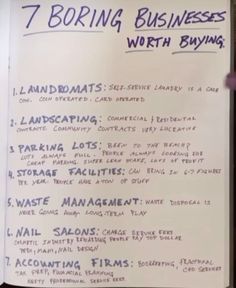 7 BORING BUSINESSES
WORTH BUYING.
1. LAUNDROMATS: SELF-SERVICE LAUNDRY IS A CASH
COW. COIN OPERATED. CARD OPERATED
2. LANDSCAPING: COMMERCIAL & RESIDENTIAL
CONTRACTS COMMUNITY CONTRACTS VERY LUCRATIVE
3. PARKING LOTS:
LOTS ALWAYS FULL. PEOPLE ALWAYS LOOKING FOR
CHEAP PARKING. SUPER LEAN WORK, LOTS OF PROFIT
4. STORAGE FACILITIES: CAN BRING IN 6-7 FIGURES
PER YEAR. PEOPLE HAVE A TON OF STUFF
5. WASTE MANAGEMENT: WASTE DISPOSAL IS
NEVER GOING AWAY. LONG TERM PLAY
6. NAIL SALONS: CHARGE SERVICE FEES
COSMETIC INDUSTRY PEOPLE PAY TOP DOLLAR
PEDI, MANI, NAIL DESIGN
7. ACCOUNTING FIRMS: BOOKKEEPING, FRACTIONAL
CFO SERVICES
TAX PREP, FINANCIAL PLANNING
HEFTY PROFESSIONAL SERVICE FEES